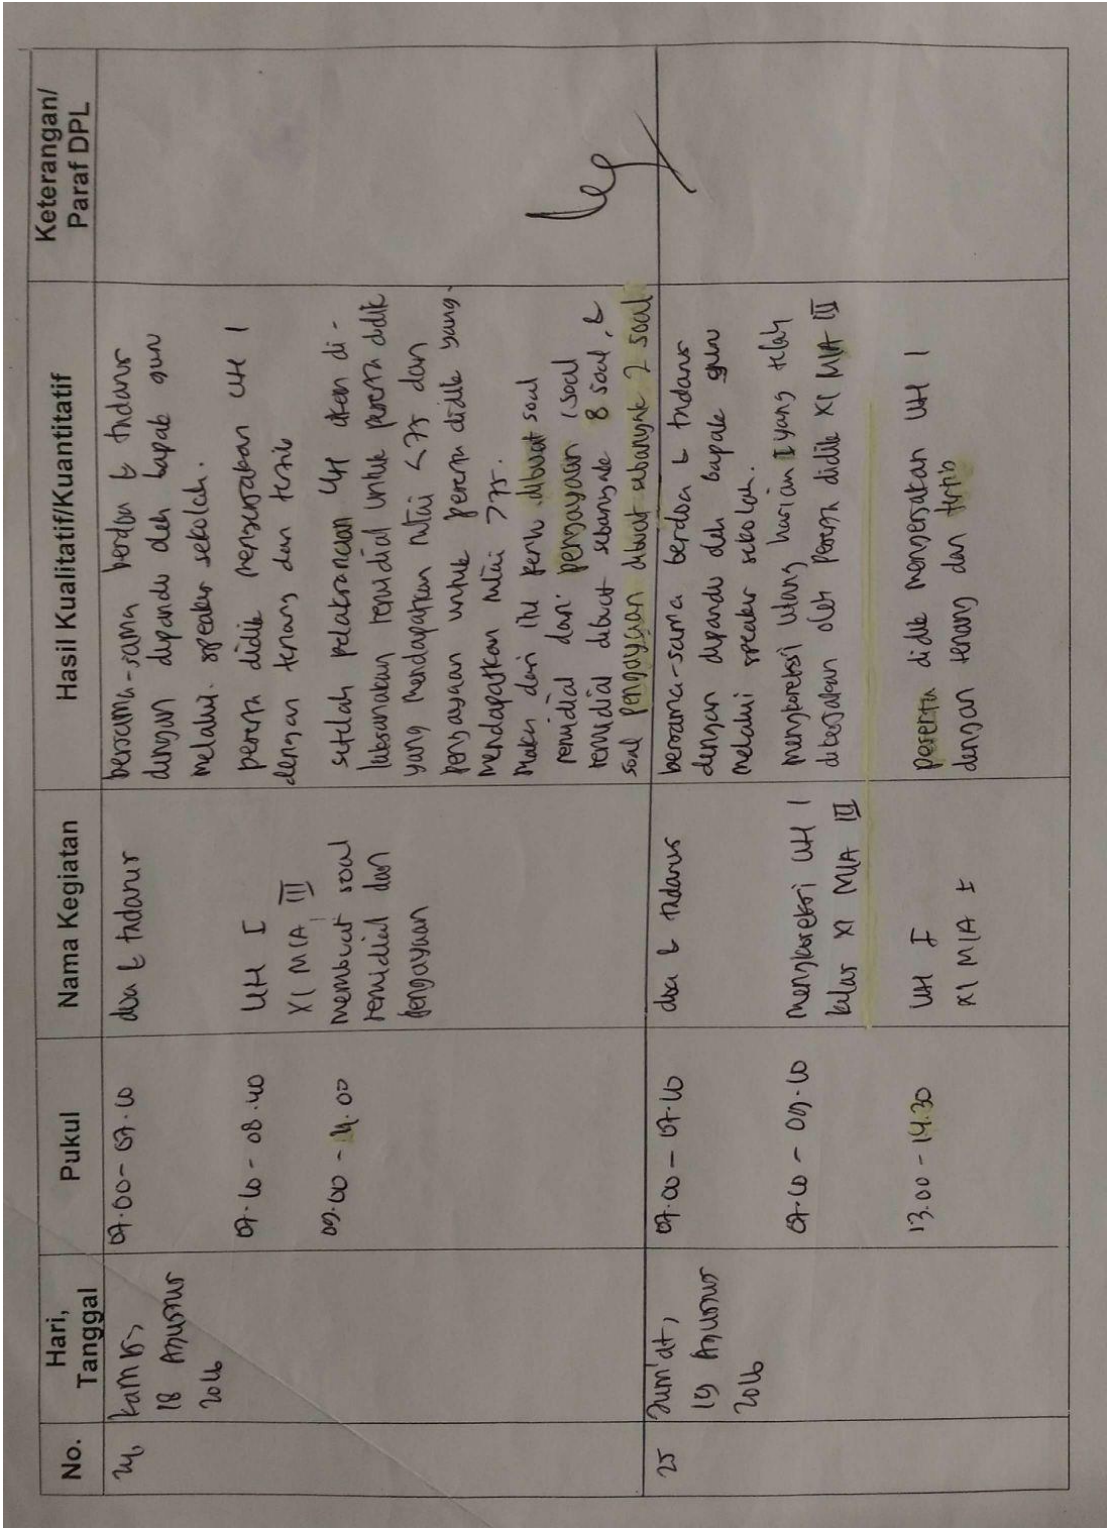 No.
Hari,
Tanggal
Pukul
Nama Kegiatan
Hasil Kualitatif/Kuantitatif
Keterangan/
Paraf DPL
24,
Kamis,
18 Agustus
2016
07.00 - 07.10
doa & tadarus
bersama-sama berdoa & tadarus
dengan dipandu oleh bapak guru
melalui speaker sekolah.
07.10 - 08.40
UH I
XI MIA III
peserta didik mengerjakan UH I
dengan tenang dan tertib
09.00 - 14.00
membuat soal
remidial dan
pengayaan
setelah pelaksanaan UH akan di-
laksanakan remidial untuk peserta didik
yang mendapatkan nilai < 75 dan
pengayaan untuk peserta didik yang
mendapatkan nilai > 75.
Maka dari itu perlu dibuat soal
remidial dan pengayaan (soal
remidial dibuat sebanyak 8 soal, &
soal pengayaan dibuat sebanyak 2 soal
25
Jum'at,
19 Agustus
2016
07.00 - 07.10
doa & tadarus
bersama-sama berdoa & tadarus
dengan dipandu oleh bapak guru
melalui speaker sekolah.
07.10 - 09.10
mengkoreksi UH I
kelas XI MIA III
mengkoreksi ulang harian I yang telah
dikerjakan oleh peserta didik XI MIA III
13.00 - 14.30
UH I
XI MIA I
peserta didik mengerjakan UH I
dengan tenang dan tertib